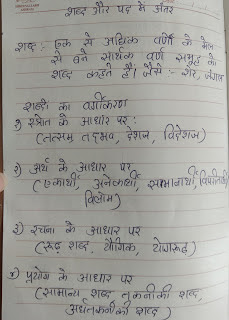 शब्द और पद में अंतर
शब्द : एक से अधिक वर्णों के मेल
से बने सार्थक वर्ण समूह को
शब्द कहते हैं। जैसे :- शेर, जंगल
शब्दों का वर्गीकरण
1) स्त्रोत के आधार पर :
(तत्सम, तद्भव, देशज, विदेशज)
2) अर्थ के आधार पर
(एकार्थी, अनेकार्थी, समानार्थी,
विलोम)
3) रचना के आधार पर
(रूढ़ शब्द, यौगिक, योगरूढ़)
4) प्रयोग के आधार पर
(सामान्य शब्द, तकनीकी शब्द,
अर्धतकनीकी शब्द)